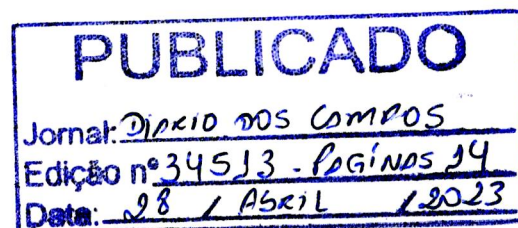 PUBLICADO
Jornal: DIARIO DOS CAMPOS
Edição nº 34513 - PAGÍNAS 14
Data: 28 / ABRIL / 2023